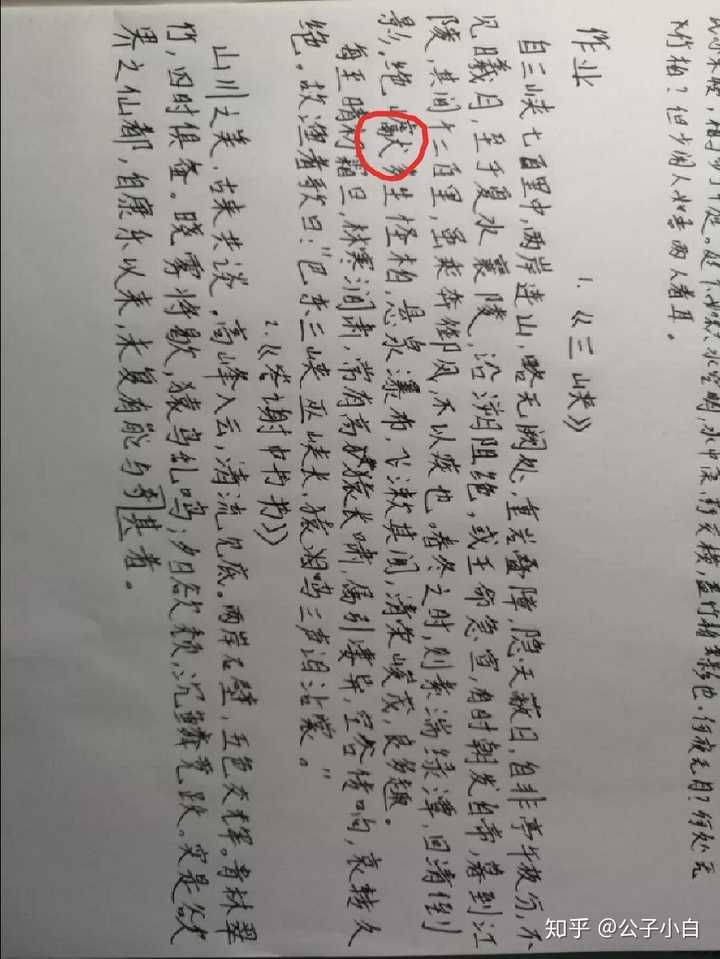 大竹柏？但少闲人如吾两人者耳。
作业
1.《三峡》
自三峡七百里中，两岸连山，略无阙处，重岩叠障，隐天蔽日，自非亭午夜分，不
见曦月，至于夏水襄陵，沿溯阻绝，或王命急宣，有时朝发白帝，暮到江
陵，其间千二百里，虽乘奔御风，不以疾也。春冬之时，则素湍绿潭，回清倒
影，绝𪩘多生怪柏，悬泉瀑布，飞漱其间，清荣峻茂，良多趣。
每至晴初霜旦，林寒涧肃，常有高猿长啸，属引凄异，空谷传响，哀转久
绝。故渔者歌曰："巴东三峡巫峡长，猿鸣三声泪沾裳。"
2.《答谢中书书》
山川之美，古来共谈，高峰入云，清流见底。两岸石壁，五色交辉。青林翠
竹，四时俱备。晓雾将歇，猿鸟乱鸣；夕日欲颓，沉鳞竞跃。实是欲
界之仙都，自康乐以来，未复有能与奇其者。
知乎 @公子小白